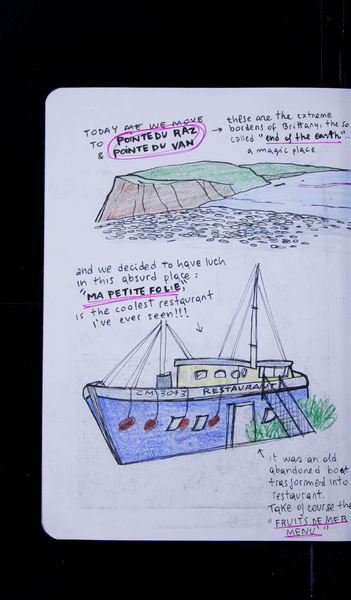 TODAY ME WE MOVE
TO POINTE DU RAZ
& POINTE DU VAN
these are the extreme
bordens of Brittany, the so
called "end of the earth"...
a magic place
and we decided to have luch
in this absurd place:
"MA PETITE FOLIE"
is the coolest restaurant
I've ever seen!!!
CM 3043
RESTAURANT
it was an old
abandoned boat
trasformed into
restaurant.
Take of course the
"FRUITS DE MER
MENU"